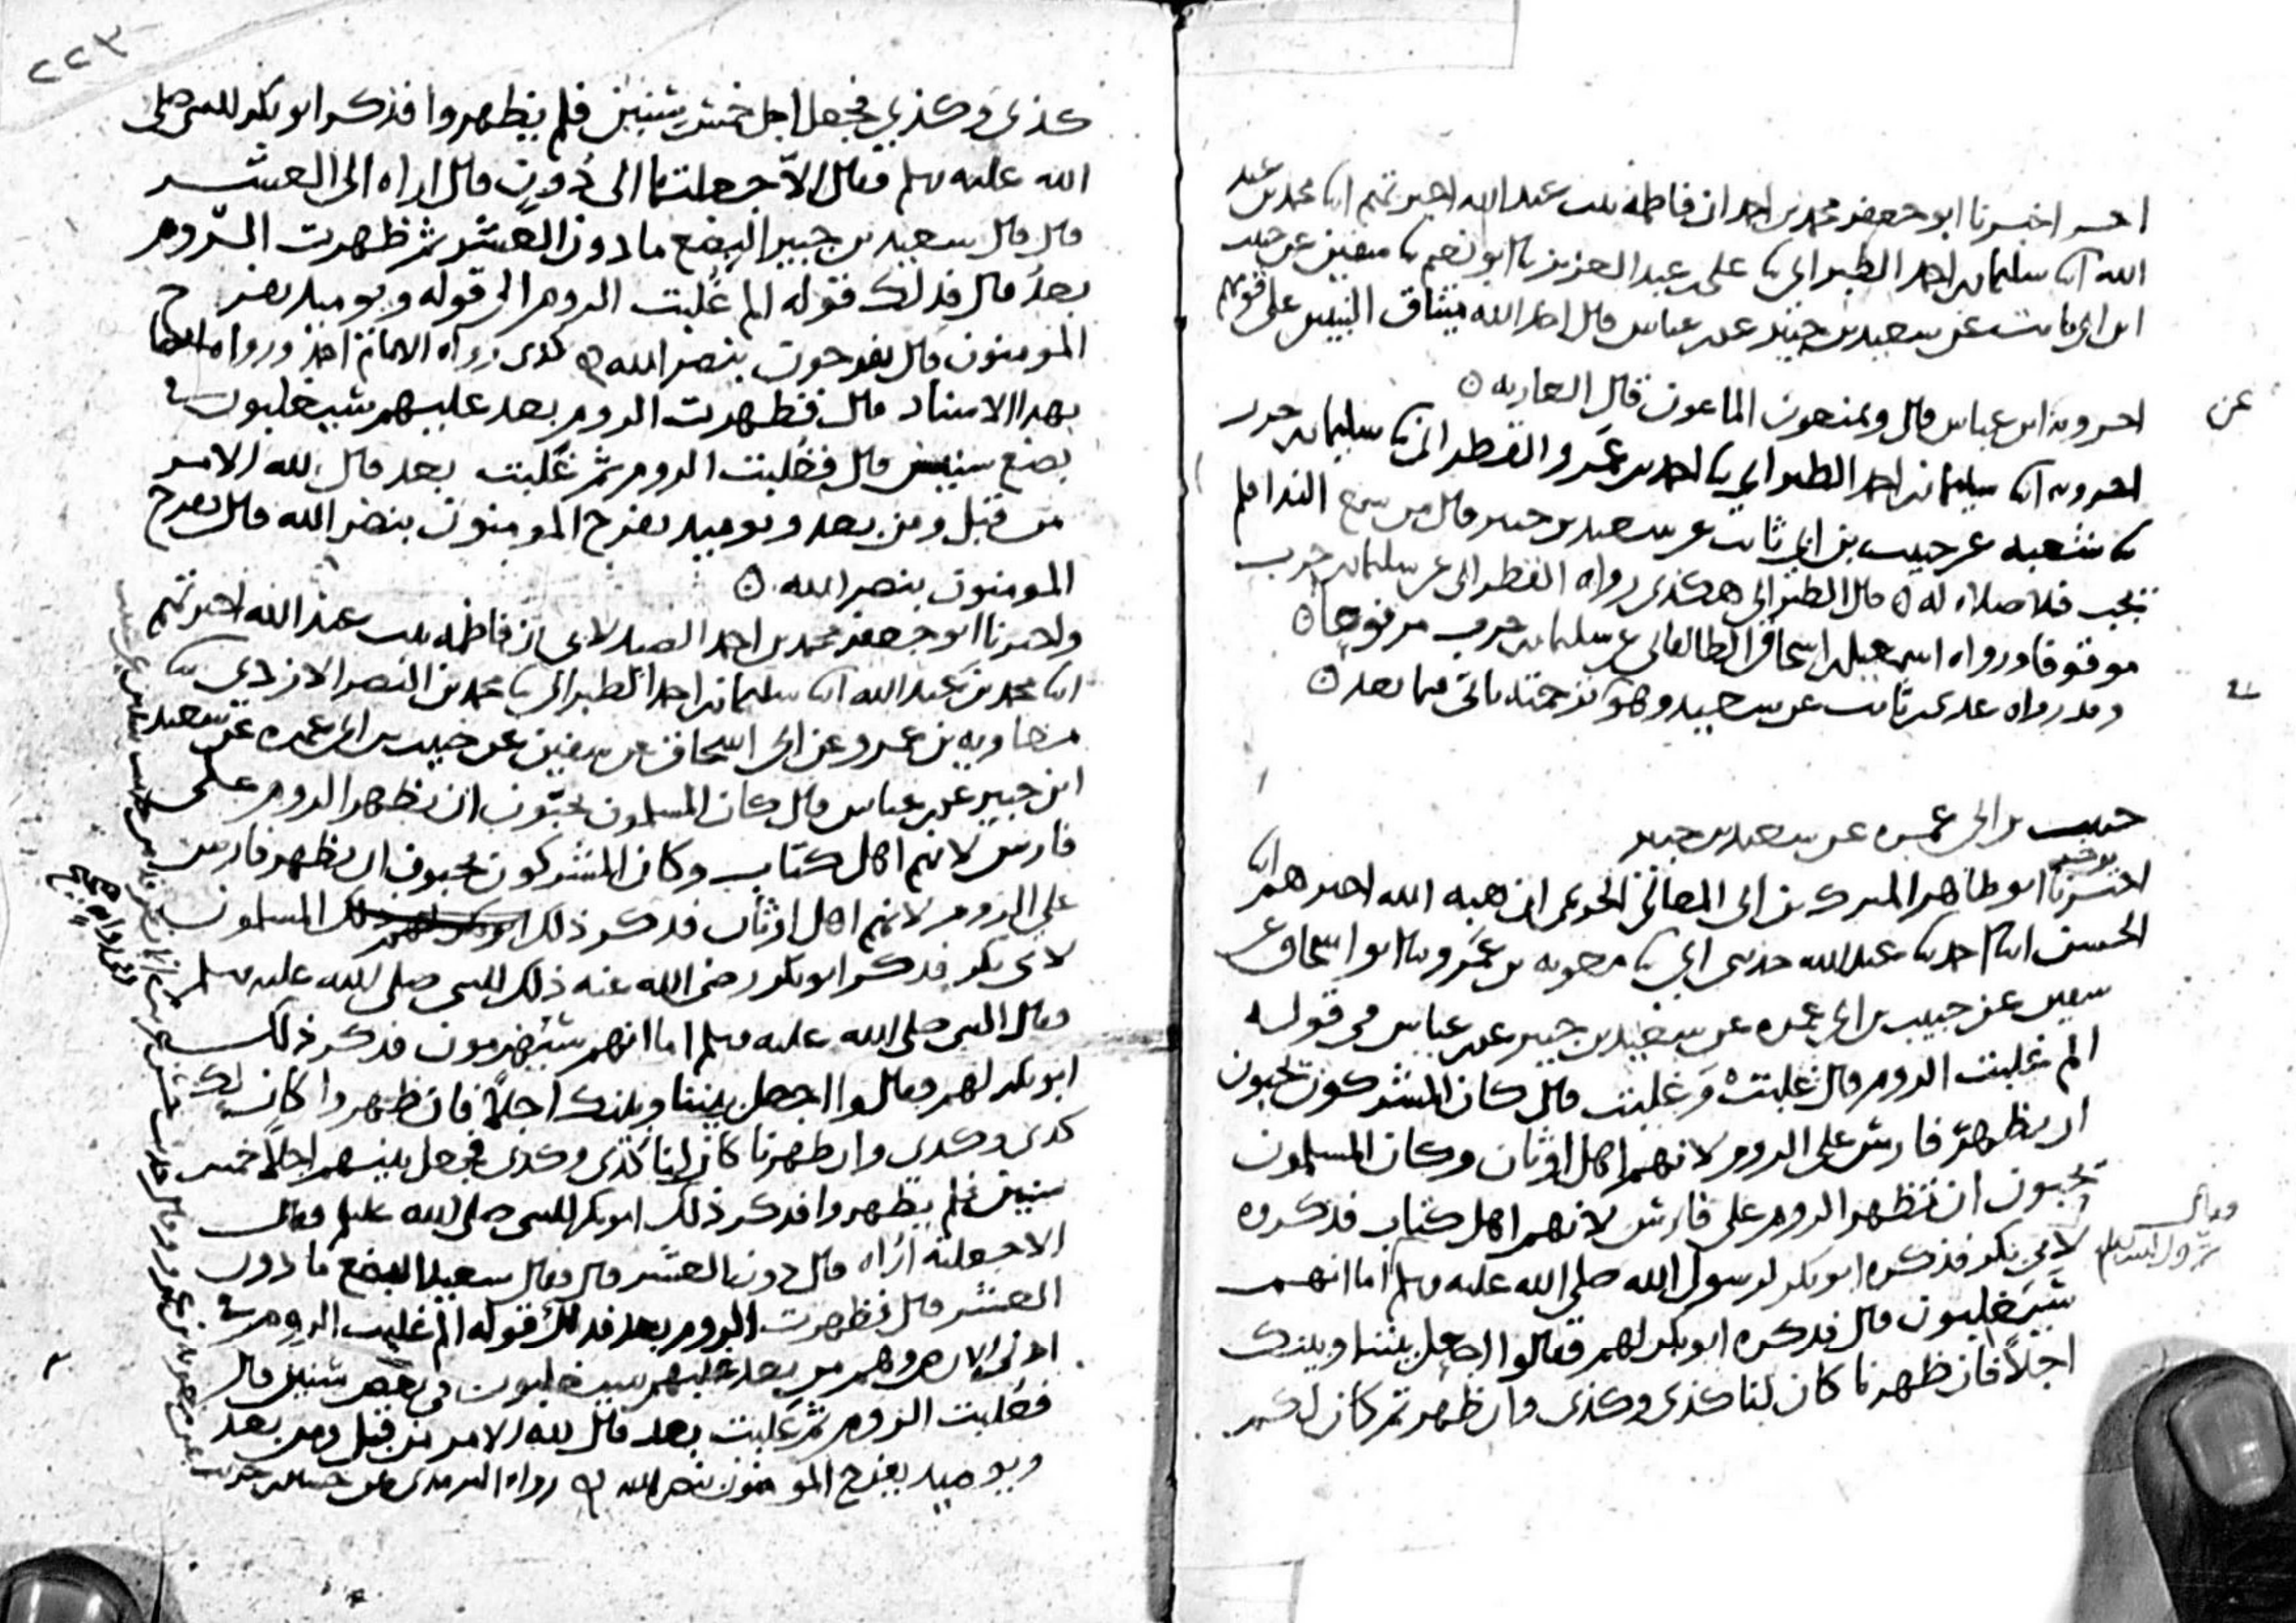 اخبرنا ابو جعفر محمد بن احمد ان فاطمة بنت عبد الله اخبرتهم ابنا محمد بن عبد
الله ابنا سليمان بن احمد الطبراني ثنا علي بن عبد العزيز ثنا ابو نعيم ثنا سفين عن حبيب
ابن ابي ثابت عن سعيد بن جبير عن ابن عباس قال اخذ الله ميثاق النبيين على قومهم
عن ابن عباس قال ويمنعون الماعون قال العاريه
ابنا سليمان بن احمد الطبراني ثنا احمد بن عمرو القطراني ثنا سليمان بن حرب
ثنا شعبه عن حبيب بن ابي ثابت عن سعيد بن جبير قال من سمع الندا فلم
يجب فلا صلاه له قال الطبراني هكذى رواه القطراني عن سليمان بن حرب
موقوفا ورواه اسمعيل بن اسحاق عن سليمان بن حرب مرفوعا
وقد رواه عدي بن ثابت عن سعيد وهو في ترجمته ياتي فيما بعد
حبيب بن ابي عمره عن سعيد بن جبير
اخبرنا ابو طاهر المبرك بن ابي المعالي الحريمي ان هبه الله اخبرهم ابنا
الحسن ابنا احمد ثنا عبد الله حدثني ابي ثنا معويه بن عمرو ثنا ابو اسحاق عن
سفين عن حبيب بن ابي عمره عن سعيد بن جبير عن ابن عباس في قوله
الم غلبت الروم قال غلبت وغلبت قال كان المشركون يحبون
ان تظهر فارس على الروم لانهم اهل اوثان وكان المسلمون
يحبون ان تظهر الروم على فارس لانهم اهل كتاب فذكروه
لابي بكر فذكره ابو بكر لرسول الله صلى الله عليه وسلم اما انهم
وقال رسول الله
سيغلبون قال فذكره ابو بكر لهم فقالوا اجعل بيننا وبينك
اجلا فان ظهرنا كان لنا كذى وكذى وان ظهرتم كان لكم
٢٢٣
كذى وكذى فجعل اجل خمس سنين فلم يظهروا فذكر ابو بكر للنبي صلى
الله عليه وسلم فقال الا جعلتها الى دون قال اراه الى العشر
قال قال سعيد بن جبير البضع ما دون العشر ثم ظهرت الروم
بعد قال فذلك قوله الم غلبت الروم الى قوله ويوميذ يفرح
المومنون قال يفرحون بنصر الله كذى رواه الامام احمد ورواه ايضا
بهذا الاسناد قال فظهرت الروم بعد غلبهم سيغلبون في
بضع سنين قال فغلبت الروم ثم غلبت بعد قال لله الامر
من قبل ومن بعد ويوميذ يفرح المومنون بنصر الله قال يفرح
المومنون بنصر الله
واخبرنا ابو جعفر محمد بن احمد الصيدلاني ان فاطمه بنت عبد الله اخبرتهم
ابنا محمد بن عبد الله ابنا سليمان بن احمد الطبراني ثنا محمد بن النضر الازدي ثنا
معاويه بن عمرو عن ابي اسحاق عن سفين عن حبيب بن ابي عمره عن سعيد
ابن جبير عن ابن عباس قال كان المسلمون يحبون ان تظهر الروم على
فارس لانهم اهل كتاب وكان المشركون يحبون ان تظهر فارس
على الروم لانهم اهل اوثان فذكر ذلك المسلمون
لابي بكر فذكر ابو بكر رضى الله عنه ذلك للنبي صلى الله عليه وسلم
فقال النبي صلى الله عليه وسلم اما انهم سيهزمون فذكر ذلك
ابو بكر لهم فقالوا اجعل بيننا وبينك اجلا فان ظهروا كان لك
كذى وكذى وان ظهرنا كان لنا كذى وكذى فجعل بينهم اجلا خمس
سنين فلم يظهروا فذكر ذلك ابو بكر للنبي صلى الله عليه وسلم فقال
الا جعلته اراه قال دون العشر قال وقال سعيد البضع ما دون
العشر قال فظهرت الروم بعد فذلك قوله الم غلبت الروم في
ادنى الارض وهم من بعد غلبهم سيغلبون في بضع سنين قال
فغلبت الروم ثم غلبت بعد قال لله الامر من قبل ومن بعد
ويوميذ يفرح المومنون بنصر الله رواه الترمذي عن حسين بن حريث